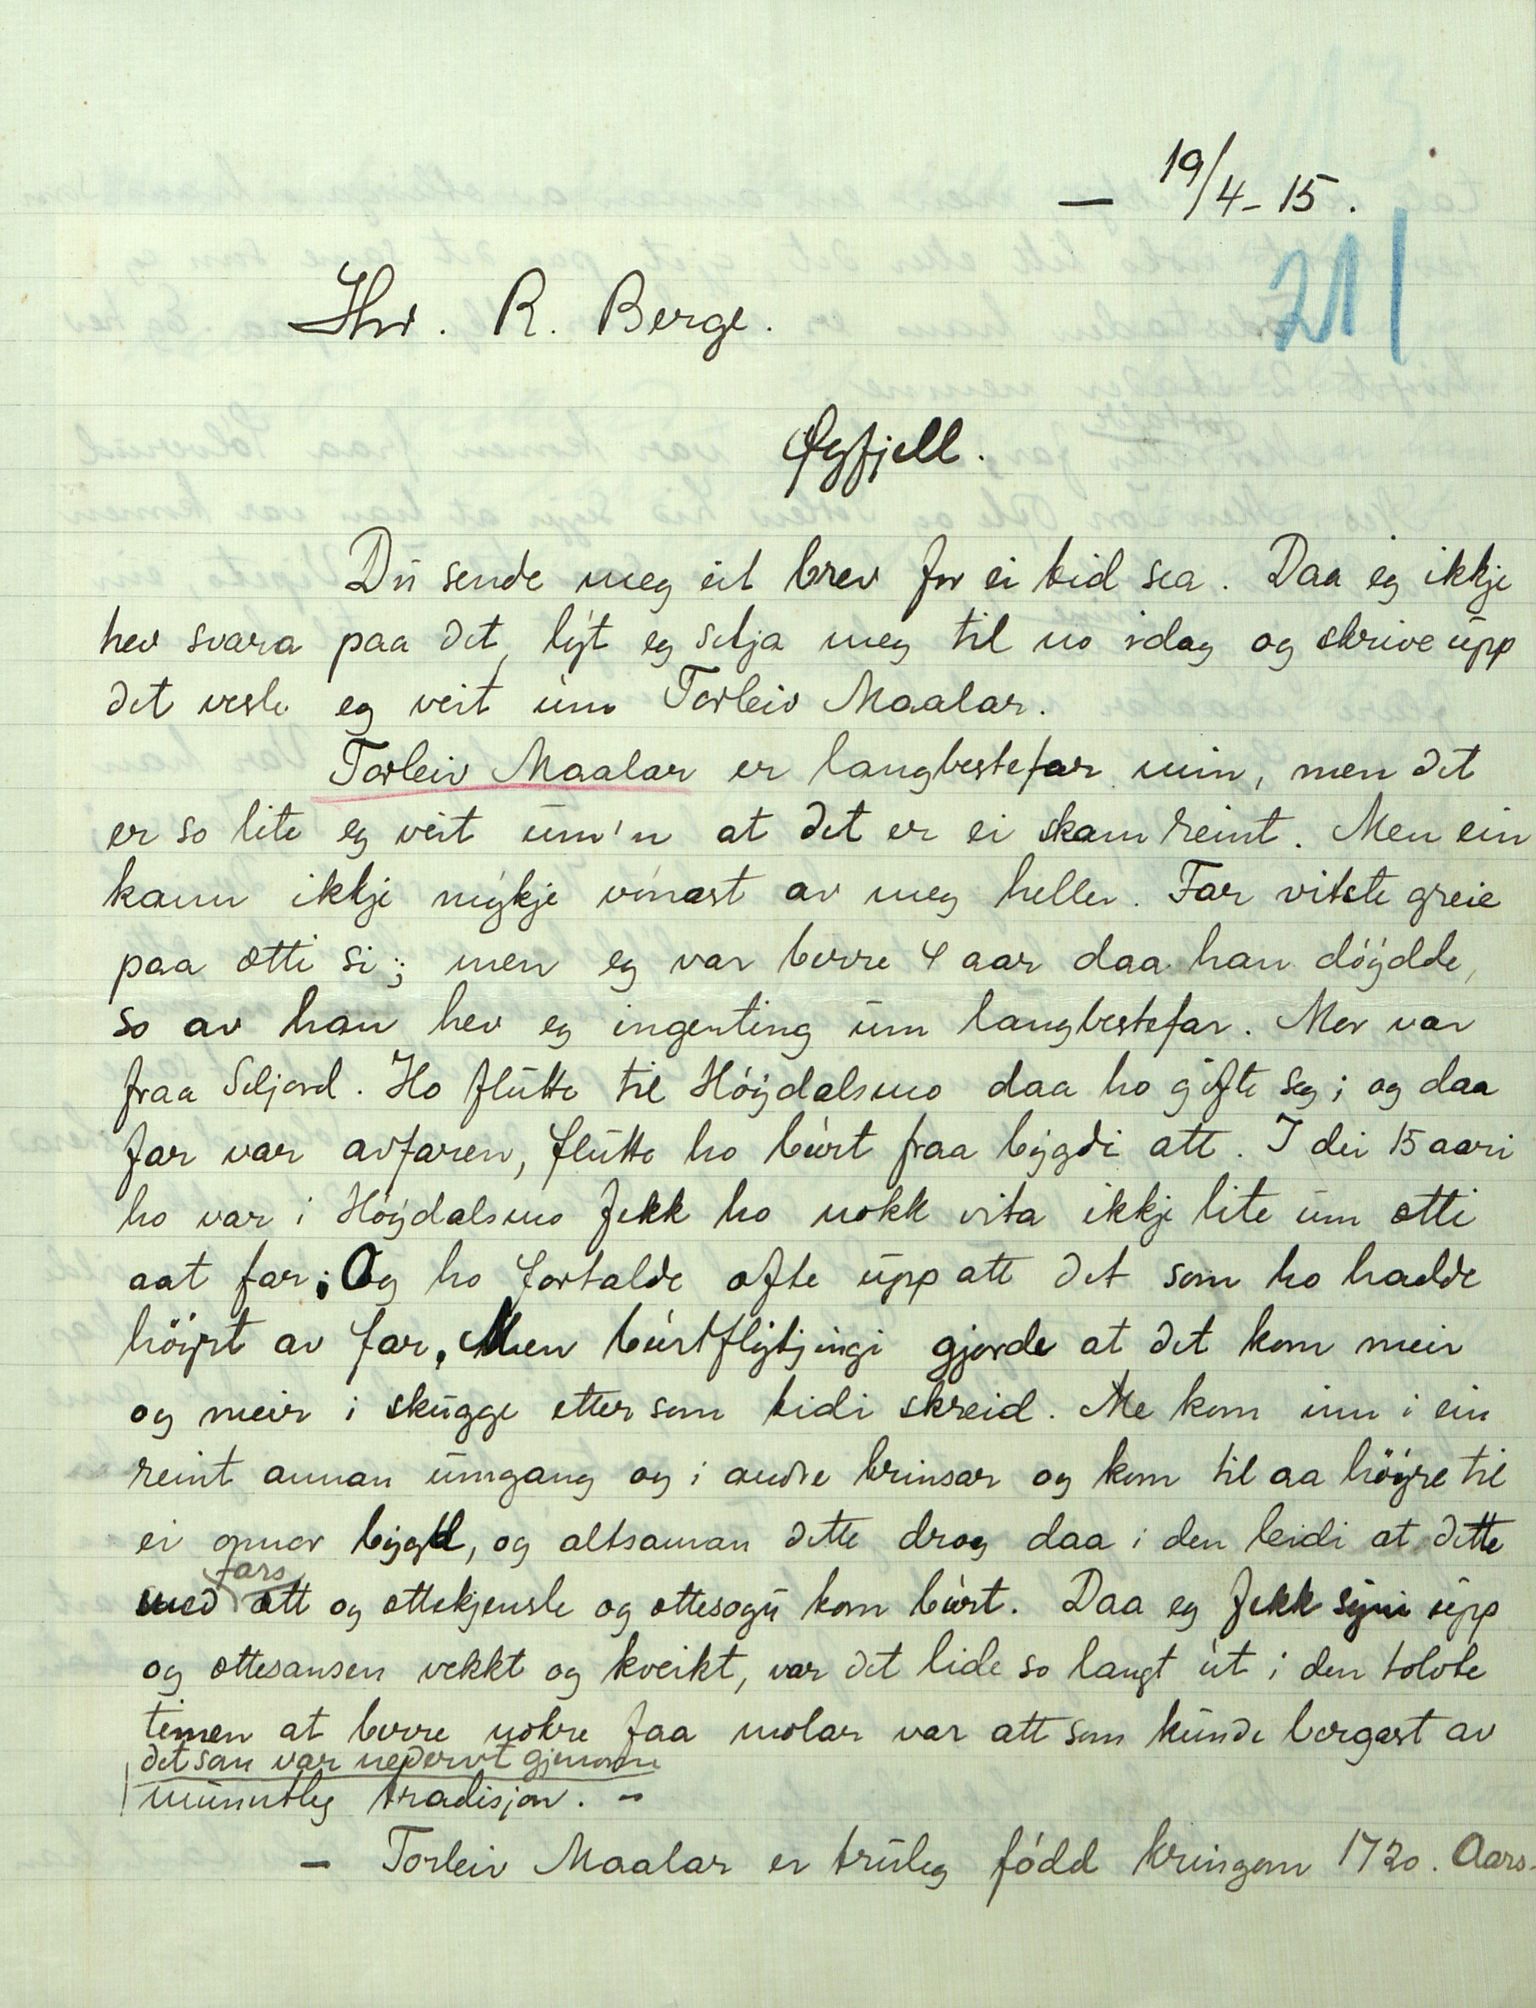 — 19/4 - 15.
211
Hr. R. Berge.
Øyfjell.
Du sende meg eit brev for ei tid sea. Daa eg ikkje
hev svara paa det, lyt eg setja meg til no idag og skrive upp
det vesle eg veit um Torleiv Maalar.
Torleiv Maalar er langbestefar min, men det
er so lite eg veit um'n at det er ei skam reint. Men ein
kann ikkje mykje vinast av meg heller. Far visste greie
paa ætti si; men eg var berre 4 aar daa han döydde,
so av han hev eg ingenting um langbestefar. Mor var
fraa Seljord. Ho flutte til Höydalsmo daa ho gifte seg; og daa
far var avfaren, flutte ho burt fraa bygdi att. I dei 15 aari
ho var i Höydalsmo fekk ho nokk vita ikkje lite um ætti
aat far; Og ho fortalde ofte upp att det som ho hadde
höyrt av far. Men burtflytjingi gjorde at det kom meir
og meir i skugge ettersom tidi skreid. Me kom inn i ein
reint annan umgang og i andre krinsar og kom til aa höyre til
ei onnor bygd, og altsaman dette drog daa i den leidi at dette
med fars ætt og ættekjensle og ættesogu kom burt. Daa eg fekk syni upp
og ættesansen vekkt og kveikt, var det lide so langt ut i den tolvte
timen at berre nokre faa molar var att som kunde bergast av
det som var nedervt gjenom
munntleg tradisjon. —
— Torleiv Maalar er truleg född kringom 1720. Aars-